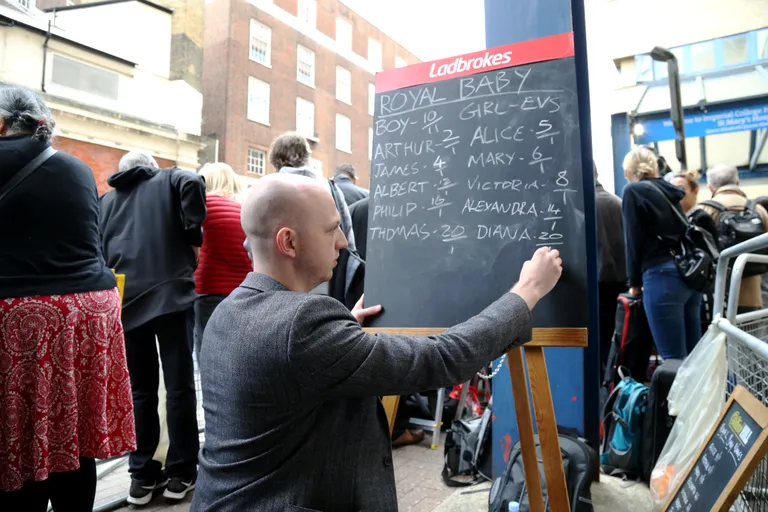 Ladbrokes
ROYAL BABY
BOY - 10/11 GIRL - EVS
ARTHUR - 2/1 ALICE - 5/1
JAMES - 4/1 MARY - 6/1
ALBERT - VICTORIA - 8/1
PHILIP - 16/1 ALEXANDRA - 14/1
THOMAS - 20/1 DIANA - 20
Welcome to Imperial College
St Mary's